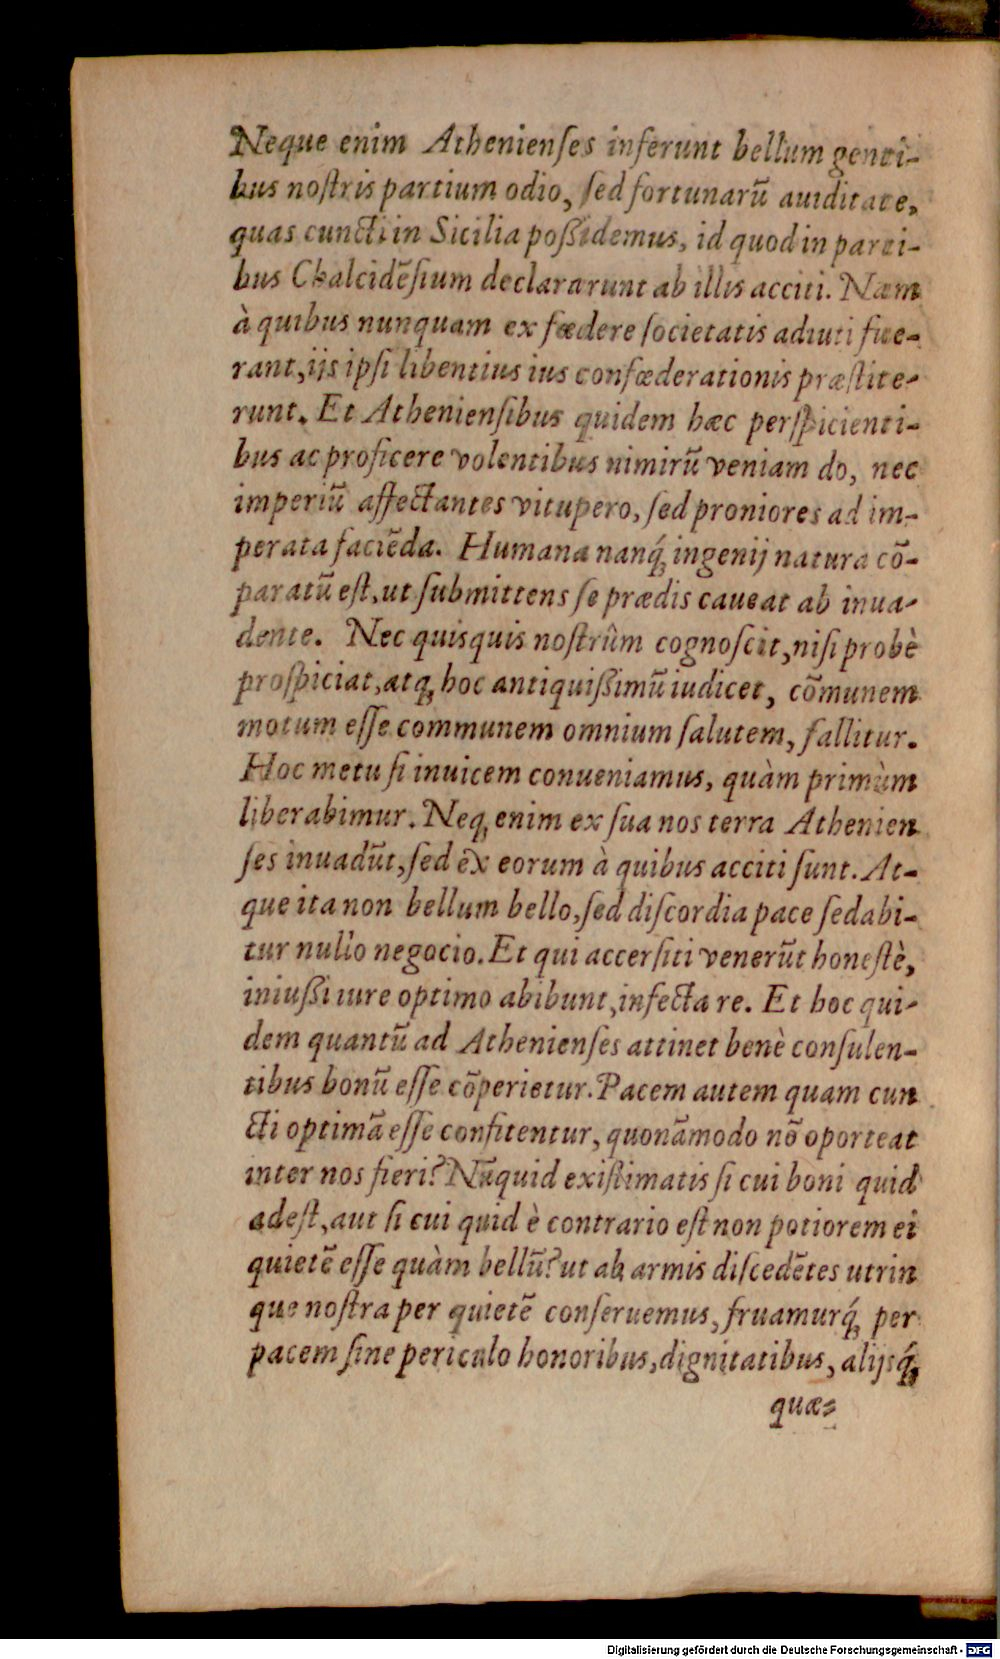 Neque enim Athenienſes inferunt bellum genti-
bus noſtris partium odio, ſed fortunarũ auiditate,
quas cuncti in Sicilia poßidemus, id quod in parti-
bus Chalcidẽſium declararunt ab illis acciti. Nam
à quibus nunquam ex fœdere ſocietatis adiuti fue-
rant, ijs ipſi libentius ius confœderationis præſtite-
runt. Et Athenienſibus quidem hæc perſpicienti-
bus ac proficere volentibus nimirũ veniam do, nec
imperiũ affectantes vitupero, ſed proniores ad im-
perata faciẽda. Humana nanq́; ingenij natura cõ-
paratũ eſt, ut ſubmittens ſe prædis caueat ab inua-
dente. Nec quisquis noſtrûm cognoſcit, niſi probè
proſpiciat, atq; hoc antiquißimũ iudicet, cõmunem
motum eſſe communem omnium ſalutem, fallitur.
Hoc metu ſi inuicem conueniamus, quàm primùm
liberabimur. Neq; enim ex ſua nos terra Athenien
ſes inuadũt, ſed ex eorum à quibus acciti ſunt. At-
que ita non bellum bello, ſed diſcordia pace ſedabi-
tur nullo negocio. Et qui accerſiti venerũt honeſtè,
iniußi iure optimo abibunt, infecta re. Et hoc qui-
dem quantũ ad Athenienſes attinet benè conſulen-
tibus bonũ eſſe cõperietur. Pacem autem quam cun
cti optimã eſſe confitentur, quonãmodo nõ oporteat
inter nos fieri? Nũquid exiſtimatis ſi cui boni quid
adeſt, aut ſi cui quid è contrario eſt non potiorem ei
quietẽ eſſe quàm bellũ? ut ab armis diſcedẽtes utrin
que noſtra per quietẽ conſeruemus, fruamurq́; per
pacem ſine periculo honoribus, dignitatibus, alijsq́;
quæ-
Digitalisierung gefördert durch die Deutsche Forschungsgemeinschaft - DFG